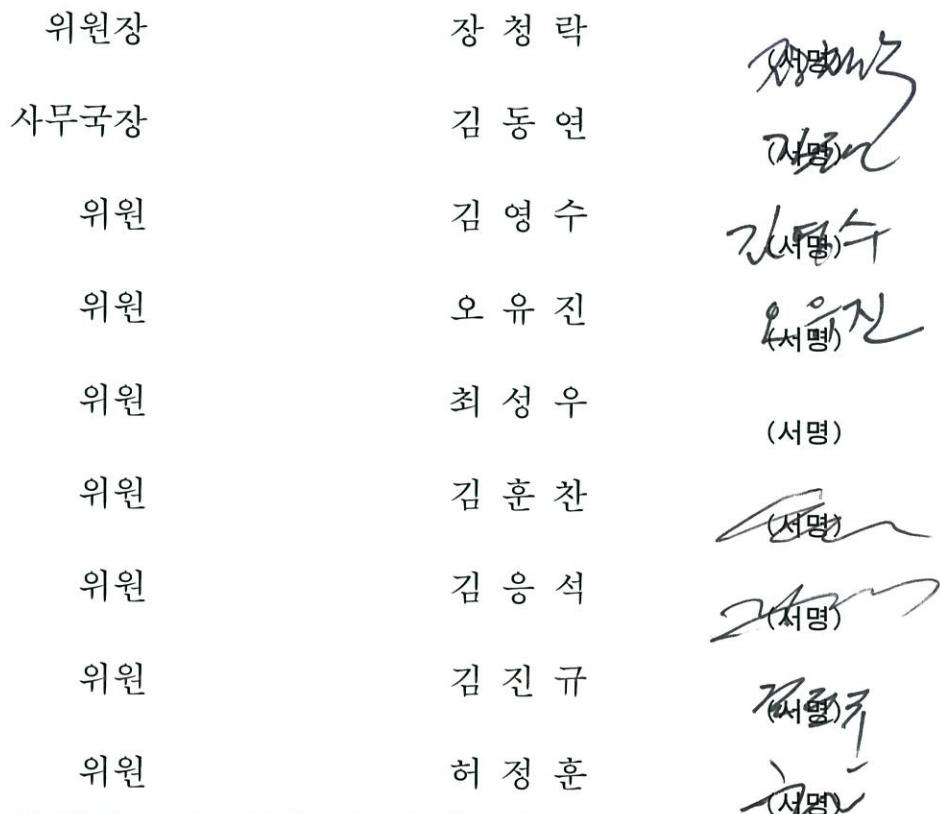 위원장 장 청 락 (서명)
사무국장 김 동 연 (서명)
위원 김 영 수 (서명) 김영수
위원 오 유 진 (서명) 오유진
위원 최 성 우 (서명)
위원 김 훈 찬 (서명)
위원 김 응 석 (서명)
위원 김 진 규 (서명)
위원 허 정 훈 (서명)